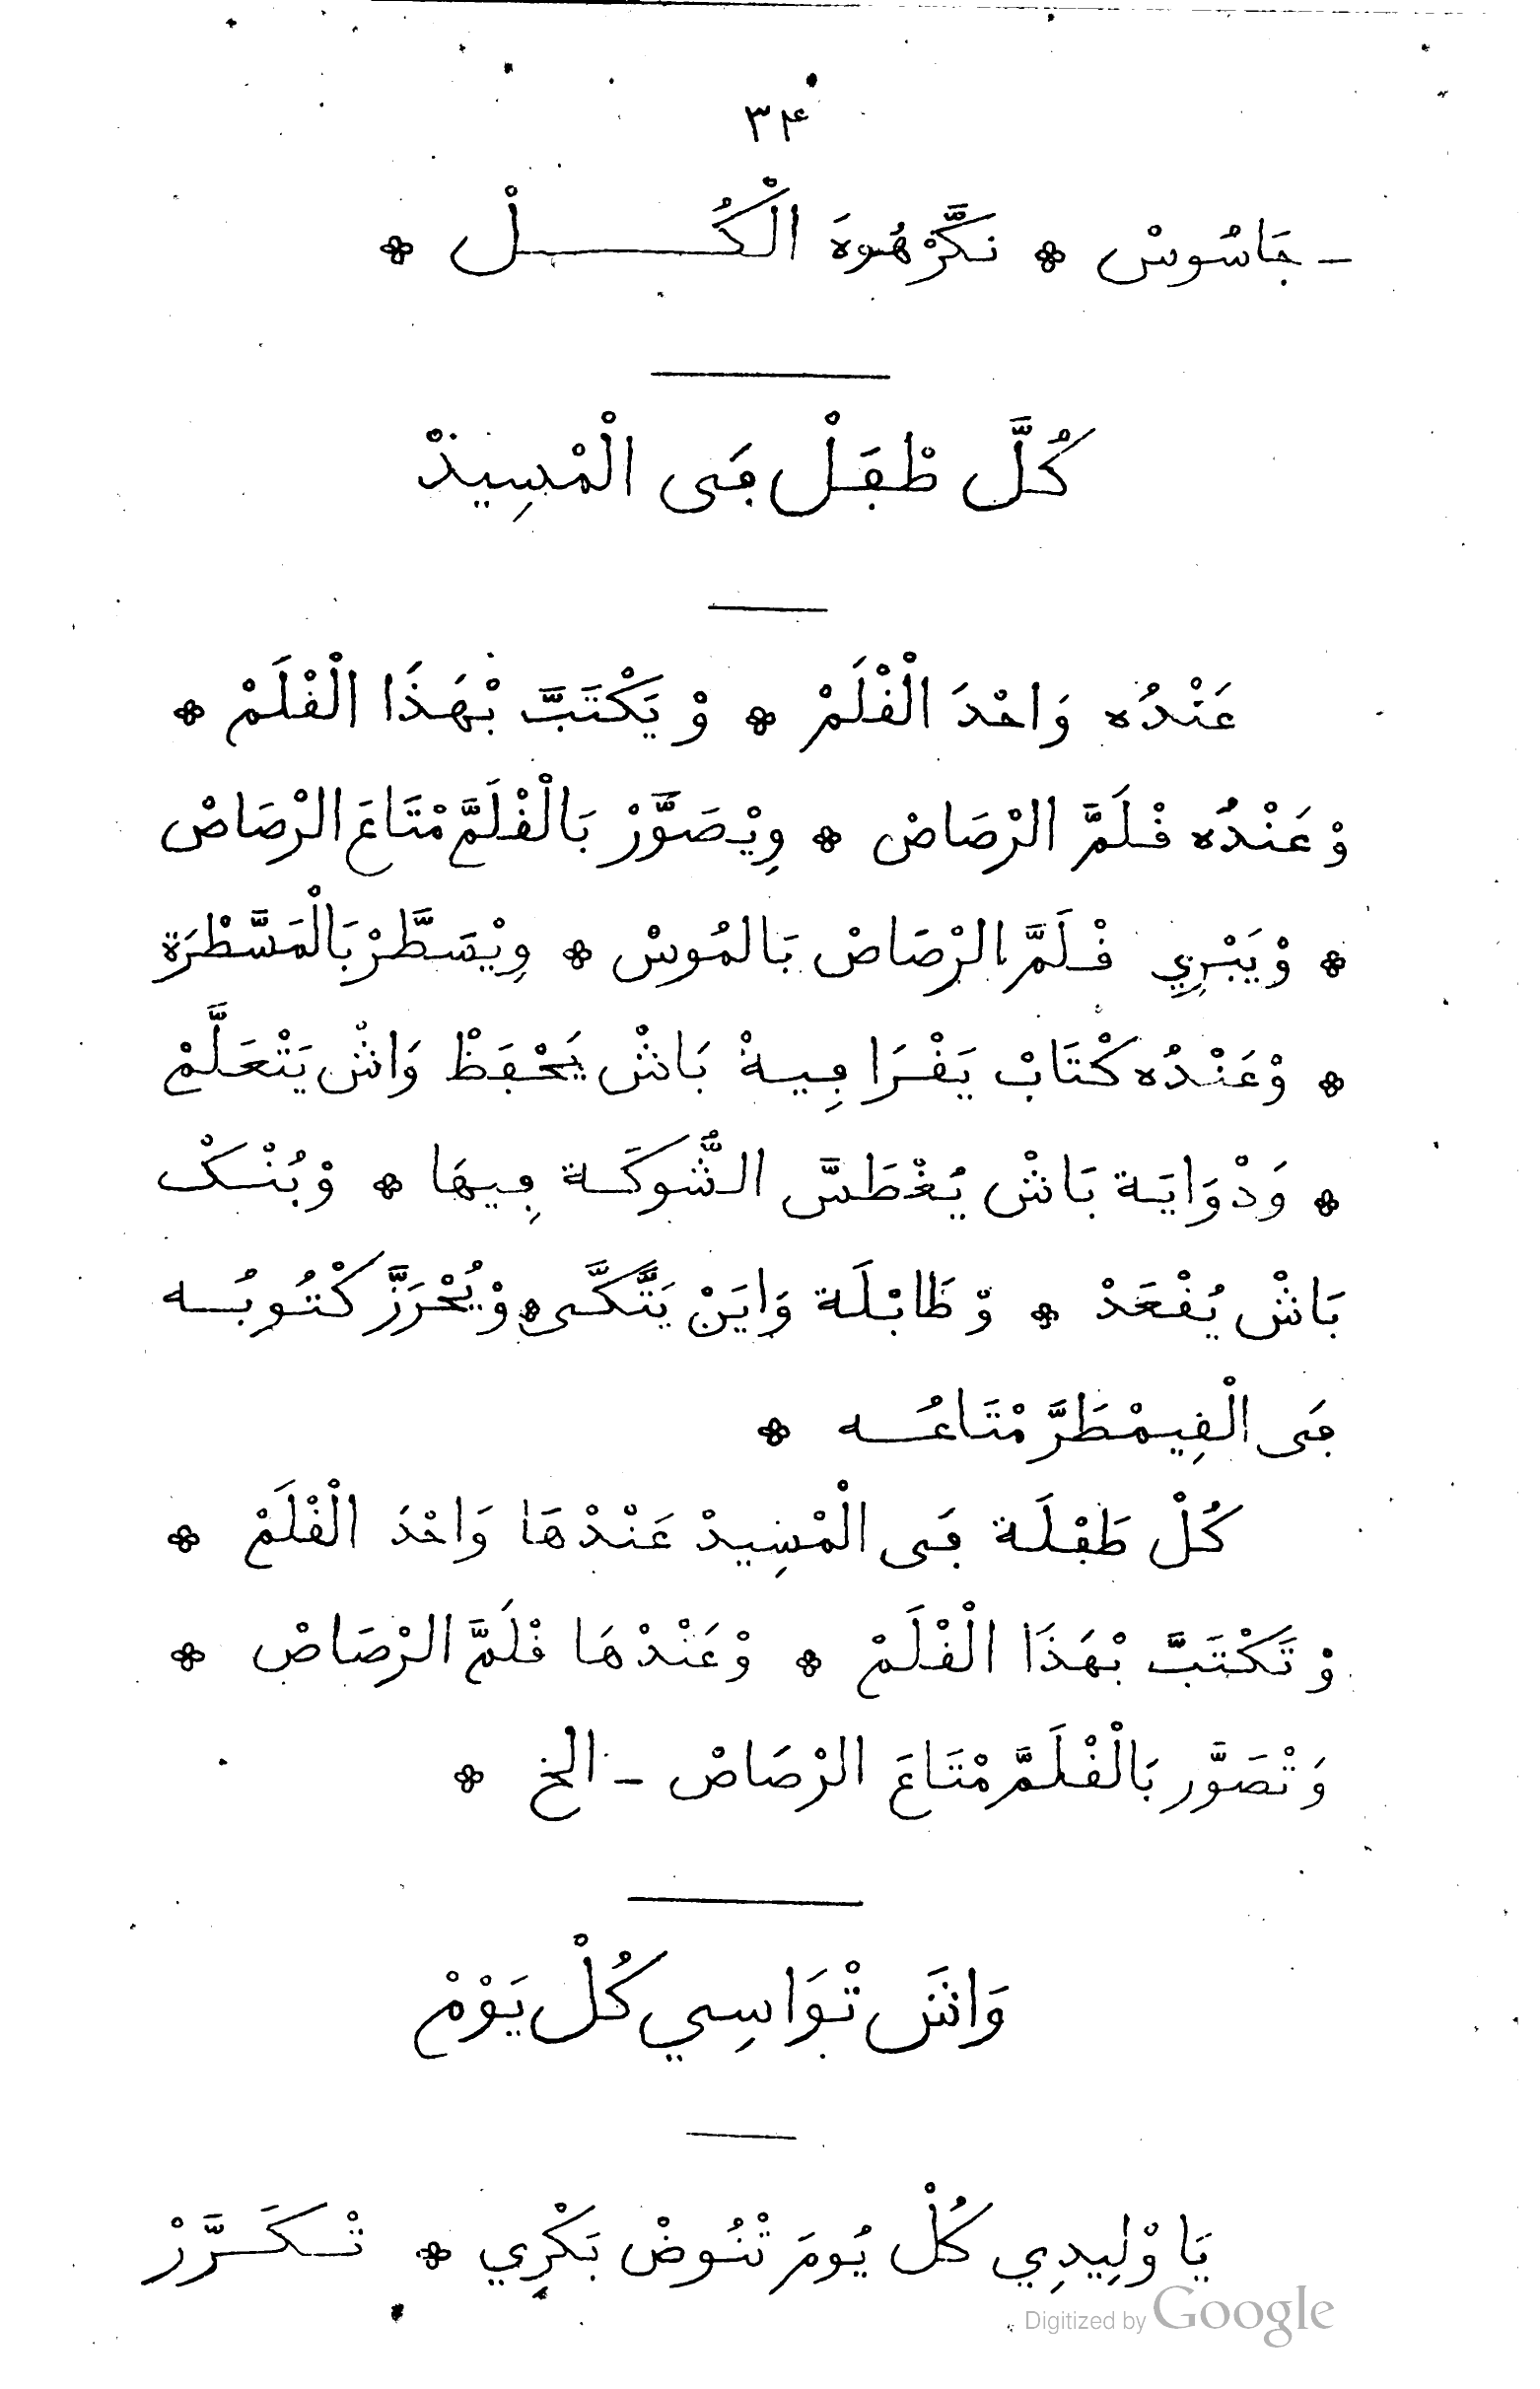 ٣۴
- جَاسُوسْ * نَكَّرْهُوهَ الْكُلْ *
كُلَّ طْفَلْ فَى الْمْسِيدْ
عَنْدُه وَاحْدَ الْقْلَمْ * وْ يَكْتَبَّ بْهَذَا الْقْلَمْ *
وْ عَنْدُه قْلَمَّ الرْصَاصْ * وِيْصَوَّرْ بَالْقْلَمَّ مْتَاعَ الرْصَاصْ
* وْيَبْرِي قْلَمَّ الرْصَاصْ بَالمُوسْ * وِيْسَطَّرْ بَالْمَسَّطْرَة
* وْعَنْدُه كْتَابْ يَقْرَا فِيهْ بَاشْ يَحْفَظْ وَاشْ يَتْعَلَّمْ
* وَدْوَايَة بَاشْ يَغْطَسَّ الشُّوكَة فِيهَا * وْبُنْكْ
بَاشْ يُقْعَدْ * وّ طَابْلَة وَايَنْ يَتَّكَّى * وْيُحْرَزَّ كْتُوبُه
فَى الْقِيمْطَرَّ مْتَاعُه *
كُلْ طَفْلَة فَى الْمْسِيدْ عَنْدْهَا وَاحْدَ الْقْلَمْ *
وْ تَكْتَبَّ بْهَذَا الْقْلَمْ * وْعَنْدْهَا قْلَمَّ الرْصَاصْ *
وَ تْصَوَّر بَالْقْلَمَّ مْتَاعَ الرْصَاصْ - الخ *
وَاشَ تْوَاسِي كُلْ يَوْمْ
يَا وْلِيدِي كُلْ يُومَ تْنُوضْ بَكْرِي * تْكَرَّرْ
Digitized by Google